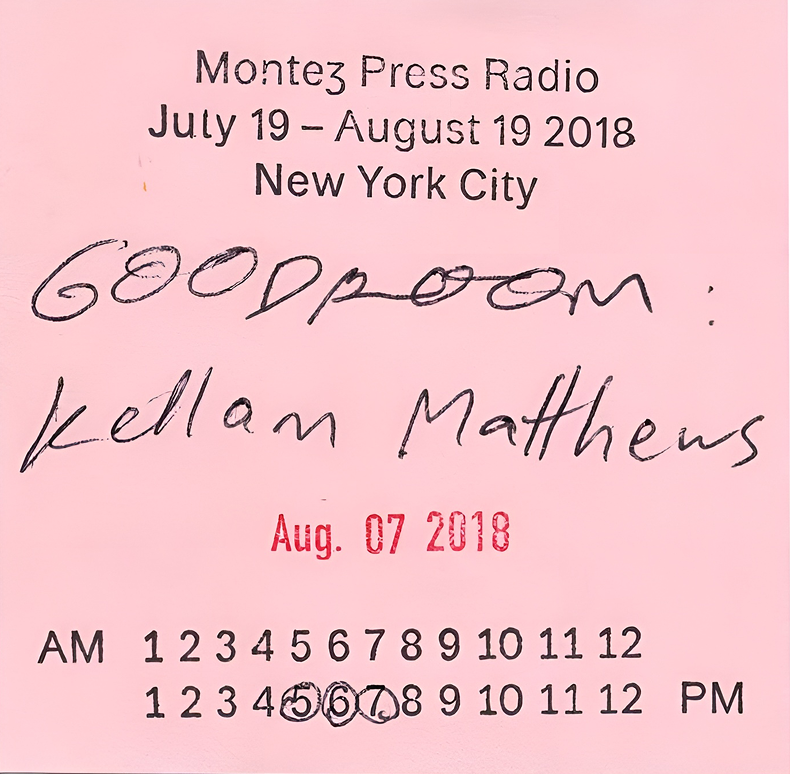 Montez Press Radio
July 19 – August 19 2018
New York City
GOODROOM :
Kellam Matthews
Aug. 07 2018
AM 1 2 3 4 5 6 7 8 9 10 11 12
1 2 3 4 5 6 7 8 9 10 11 12 PM